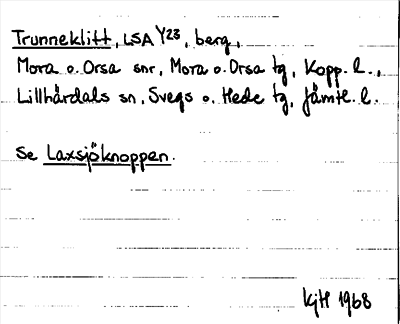 Trunneklitt, LSA Y23, berg,
Mora o. Orsa snr, Mora o. Orsa tg, Kopp. l.,
Lillhärdals sn, Svegs o. Hede tg, Jämtl. l.
Se Laxsjöknoppen.
KjH 1968